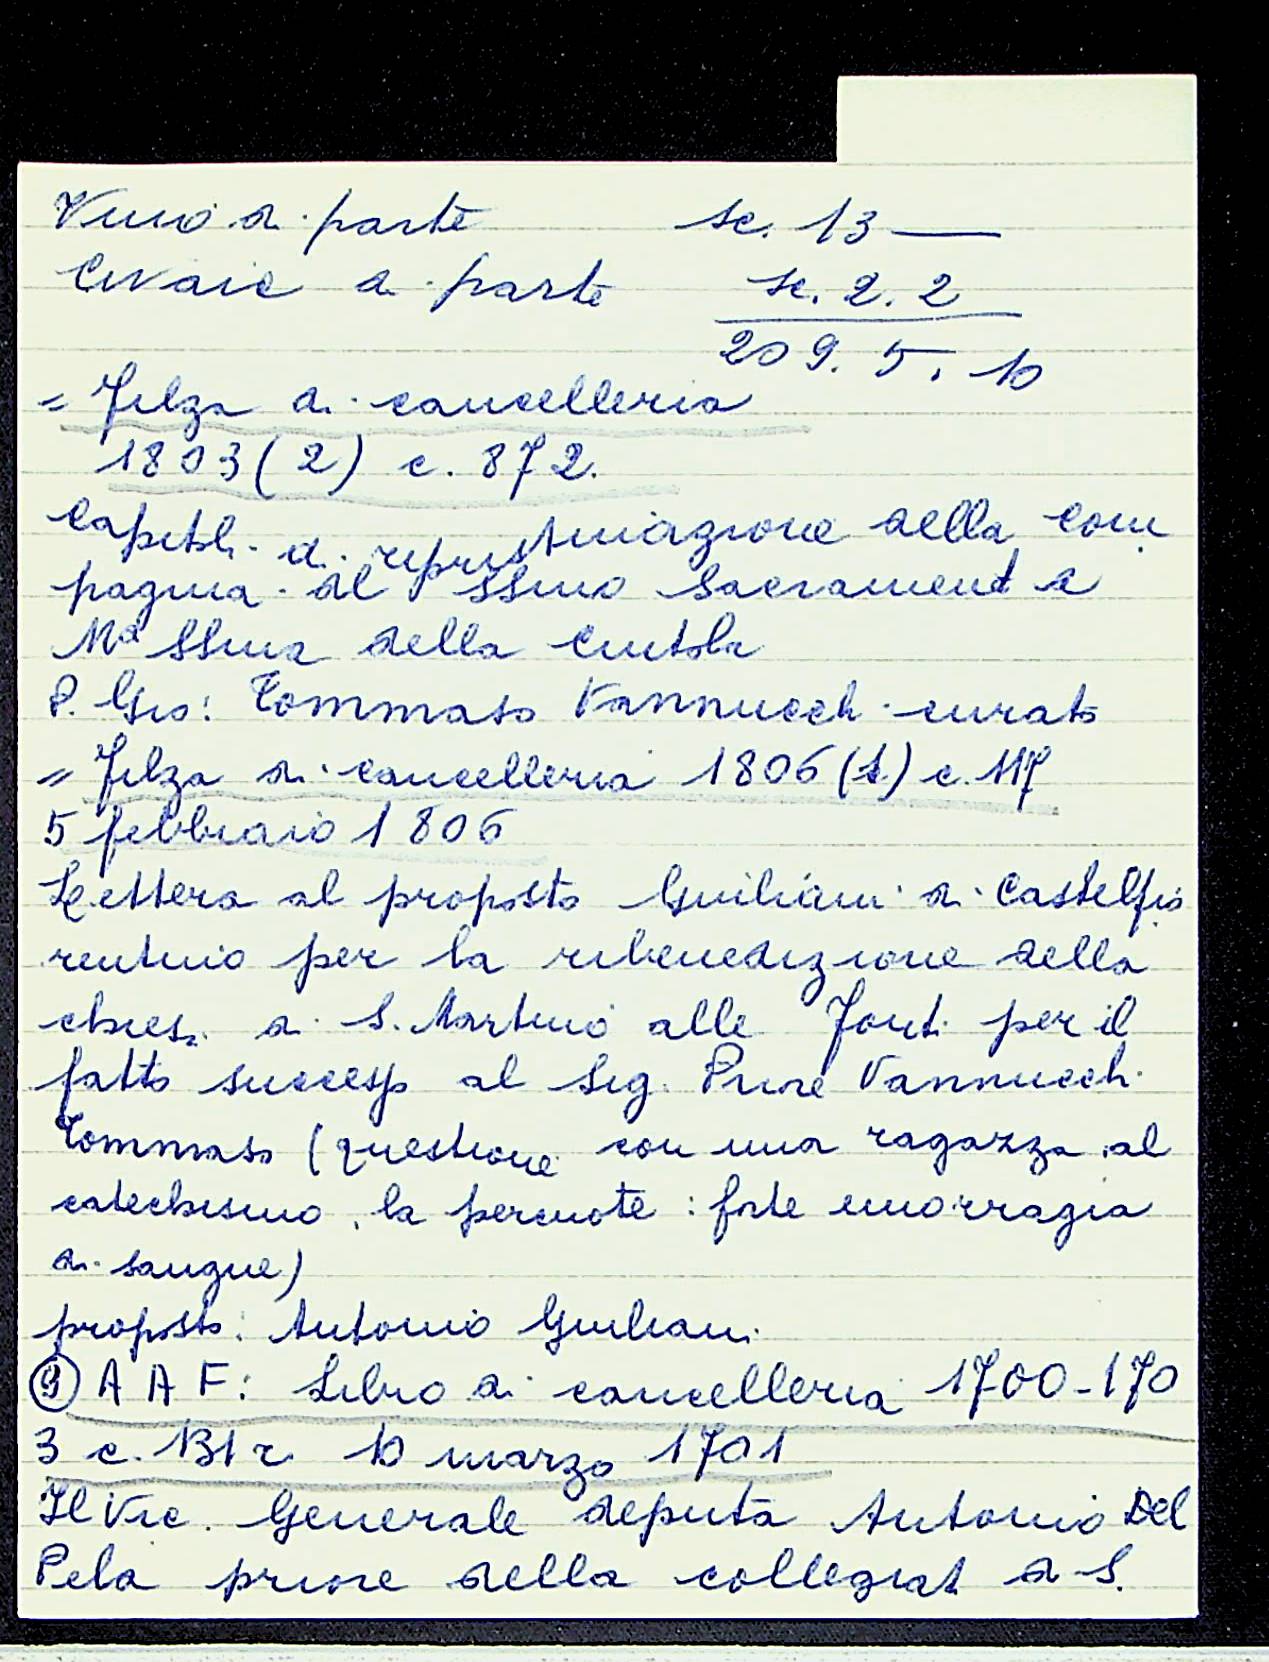 Vino di parte sc. 13 —
Civaie di parte sc. 2. 2
209. 5. 10
= Filza di cancelleria
1803 (2) c. 872.
Capitoli di ripristinazione della Com
pagnia del SSmo Sacramento e
Mª SSma della Cintola
P. Gio: Tommaso Vannucchi curato
= Filza di cancelleria 1806 (1) c. 117
5 febbraio 1806
Lettera al proposto Giuliani di Castelfio
rentino per la ribenedizione della
chiesa di S. Martino alle Fonti per il
fatto successo al Sig. Priore Vannucchi
Tommaso (questione con una ragazza al
catechismo, la percuote: forte emorragia
di sangue)
proposto: Antonio Giuliani
⑨ A A F: Libro di cancelleria 1700-170
3 c. 131 r. 10 marzo 1701
Il Vic. Generale deputa Antonio Del
Pela priore della collegiat di S.